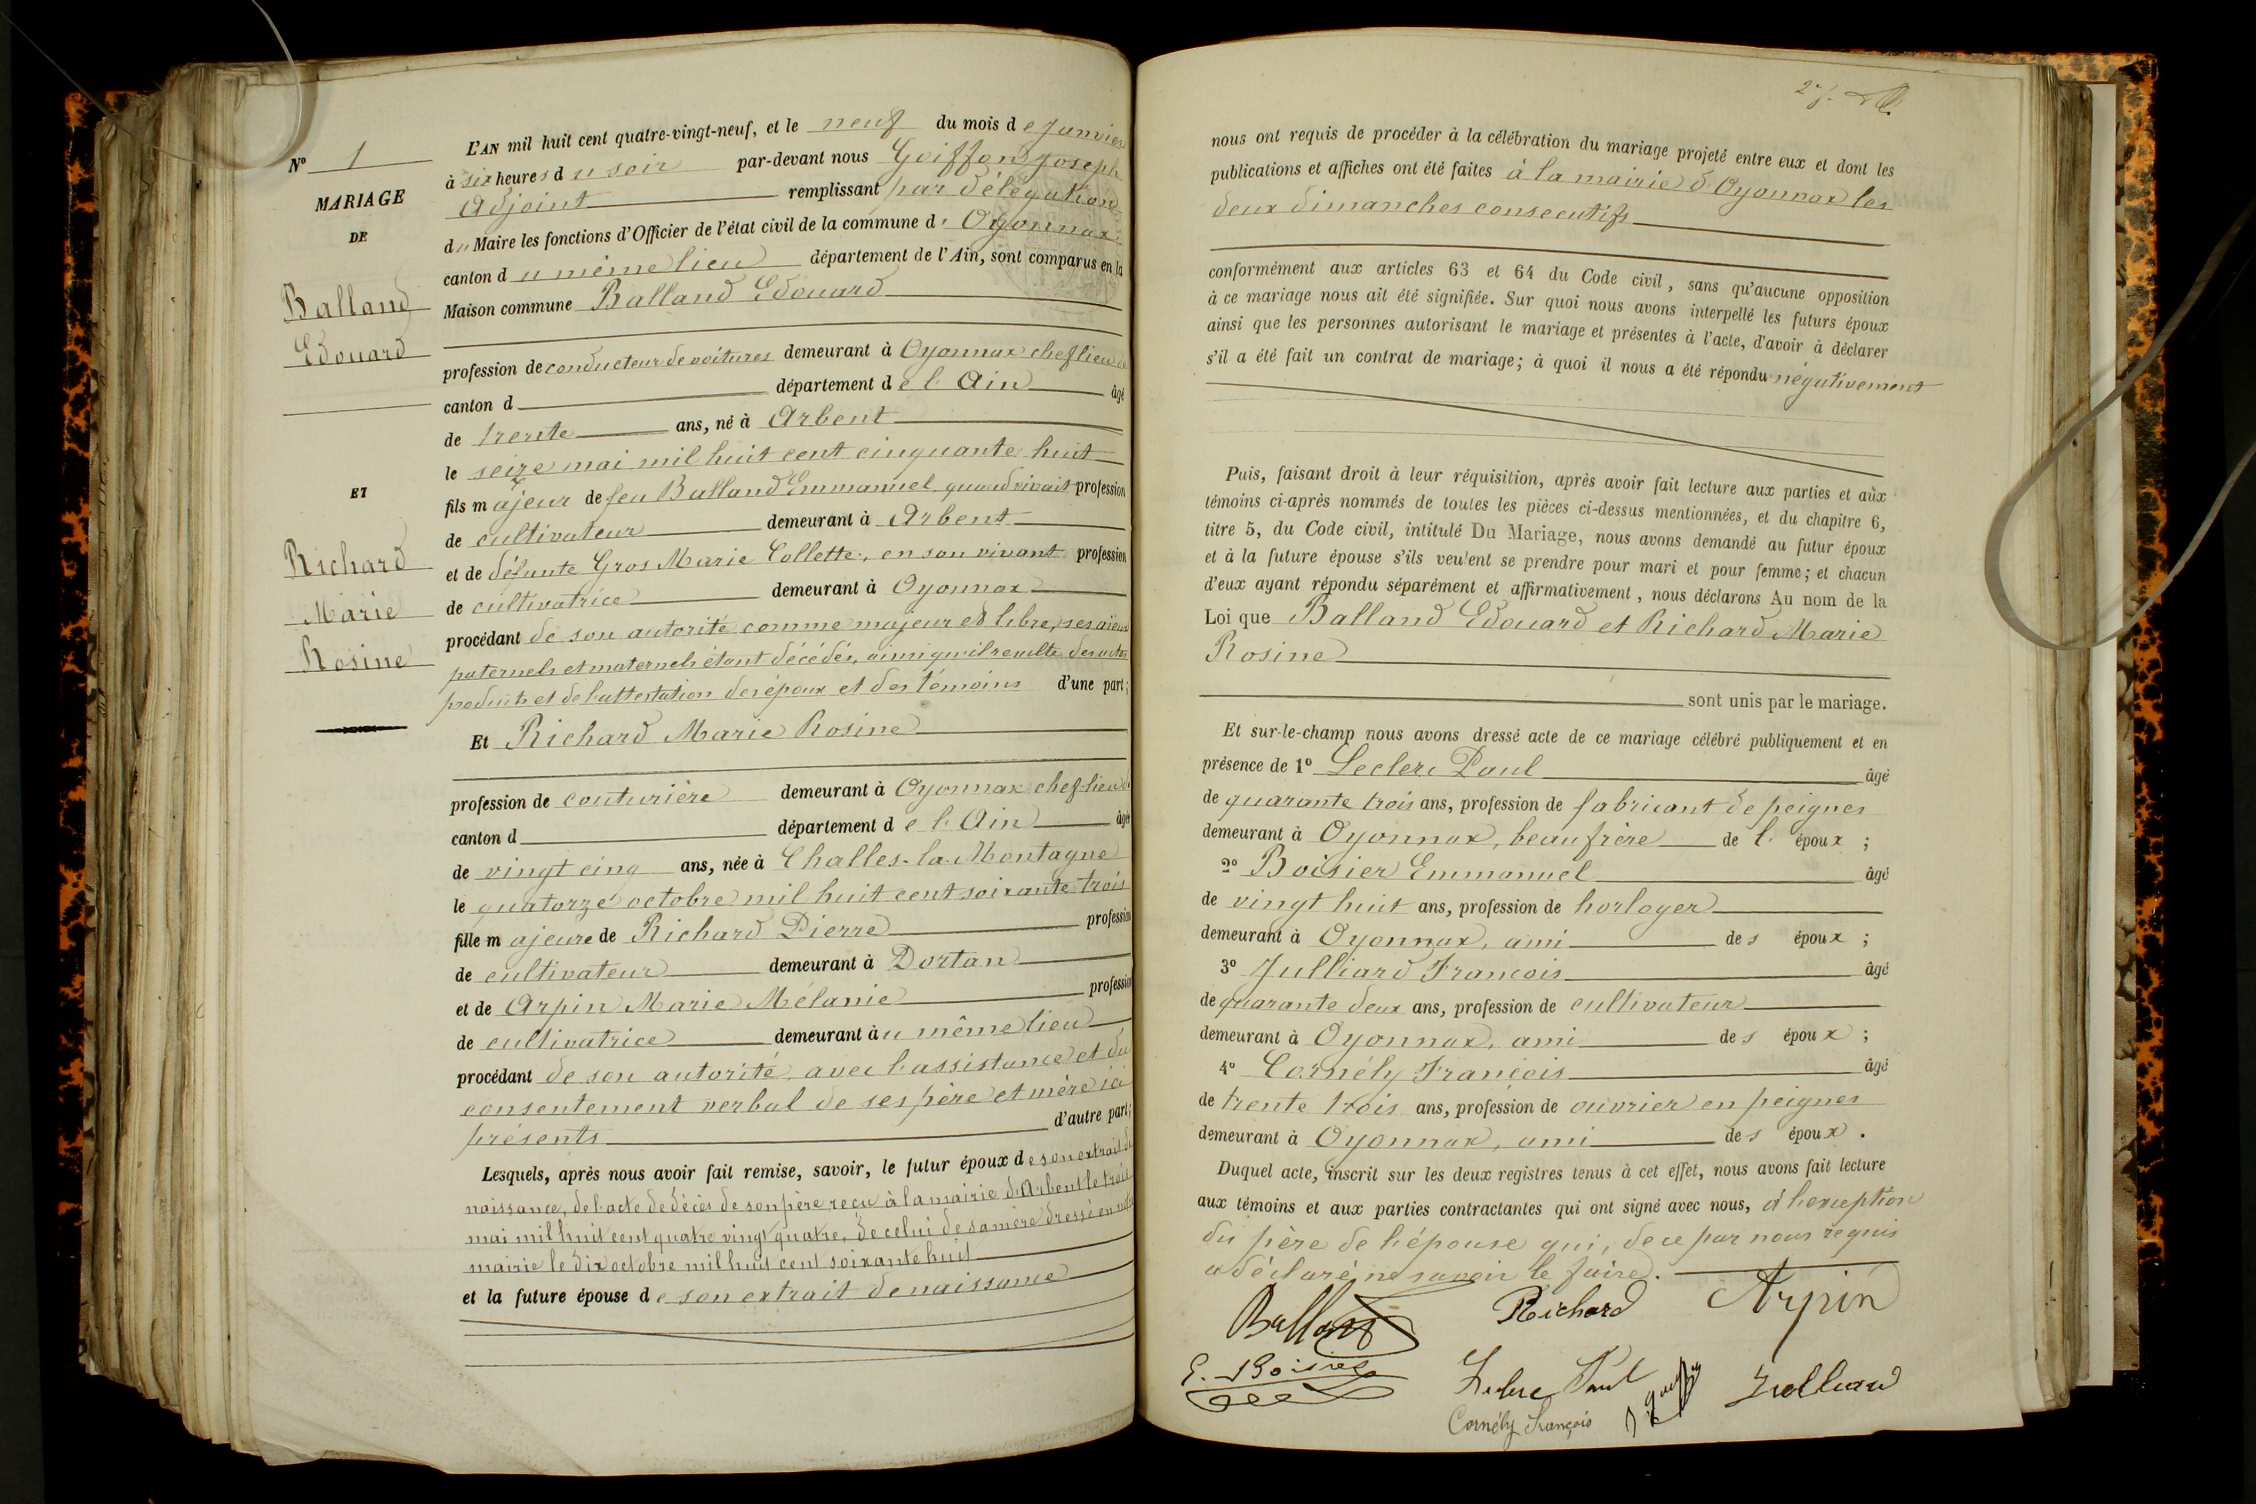 N° 1
MARIAGE
DE
Balland
Edouard
ET
Richard
Marie
Rosine
L'AN mil huit cent quatre-vingt-neuf, et le neuf du mois de Janvier
à six heures du soir par-devant nous Goiffon Joseph
Adjoint remplissant par délégation
du Maire les fonctions d'Officier de l'état civil de la commune d' Oyonnax
canton du même lieu département de l'Ain, sont comparus en la
Maison commune Balland Edouard
profession de conducteur de voitures demeurant à Oyonnax chef lieu de
canton d département de l'Ain âgé
de trente ans, né à Arbent
le seize mai mil huit cent cinquante huit
fils majeur de feu Balland Emmanuel quand vivait profession
de cultivateur demeurant à Arbent
et de défunte Gros Marie Collette, en son vivant profession
de cultivatrice demeurant à Oyonnax
procédant de son autorité comme majeur et libre, ses aïeux
paternels et maternels étant décédés, ainsi qu'il resulte des actes
produits et de l'attestation des époux et des témoins d'une part;
Et Richard Marie Rosine
profession de couturière demeurant à Oyonnax chef-lieu de
canton d département de l'Ain âgée
de vingt cinq ans, née à Challes-la-Montagne
le quatorze octobre mil huit cent soixante trois
fille majeure de Richard Pierre profession
de cultivateur demeurant à Dortan
et de Arpin Marie Mélanie profession
de cultivatrice demeurant au même lieu
procédant de son autorité avec l'assistance et du
consentement verbal de ses père et mère ici
présents d'autre part;
Lesquels, après nous avoir fait remise, savoir, le futur époux de son extrait de
naissance, de l'acte de décès de son père reçu à la mairie d'Arbent le trois
mai mil huit cent quatre vingt quatre, de celui de sa mère dressé en notre
mairie le dix octobre mil huit cent soixante huit
et la future épouse de son extrait de naissance
27.
nous ont requis de procéder à la célébration du mariage projeté entre eux et dont les
publications et affiches ont été faites à la mairie d'Oyonnax les
deux dimanches consecutifs
conformément aux articles 63 et 64 du Code civil, sans qu'aucune opposition
à ce mariage nous ait été signifiée. Sur quoi nous avons interpellé les futurs époux
ainsi que les personnes autorisant le mariage et présentes à l'acte, d'avoir à déclarer
s'il a été fait un contrat de mariage; à quoi il nous a été répondu négativement
Puis, faisant droit à leur réquisition, après avoir fait lecture aux parties et aux
témoins ci-après nommés de toutes les pièces ci-dessus mentionnées, et du chapitre 6,
titre 5, du Code civil, intitulé Du Mariage, nous avons demandé au futur époux
et à la future épouse s'ils veulent se prendre pour mari et pour femme; et chacun
d'eux ayant répondu séparément et affirmativement, nous déclarons Au nom de la
Loi que Balland Edouard et Richard Marie
Rosine
sont unis par le mariage.
Et sur-le-champ nous avons dressé acte de ce mariage célébré publiquement et en
présence de 1° Leclerc Paul âgé
de quarante trois ans, profession de fabricant de peignes
demeurant à Oyonnax, beau frère de l' époux ;
2° Boisier Emmanuel âgé
de vingt huit ans, profession de horloger
demeurant à Oyonnax, ami des époux ;
3° Julliard Francois âgé
de quarante deux ans, profession de cultivateur
demeurant à Oyonnax, ami des époux ;
4° Cornély François âgé
de trente trois ans, profession de ouvrier en peignes
demeurant à Oyonnax, ami des époux.
Duquel acte, inscrit sur les deux registres tenus à cet effet, nous avons fait lecture
aux témoins et aux parties contractantes qui ont signé avec nous, à l'exception
du père de l'épouse qui, de ce par nous requis
a déclaré ne savoir le faire.
Balland Richard Arpin
E. Boisier Leclerc Paul Julliard
Cornély François